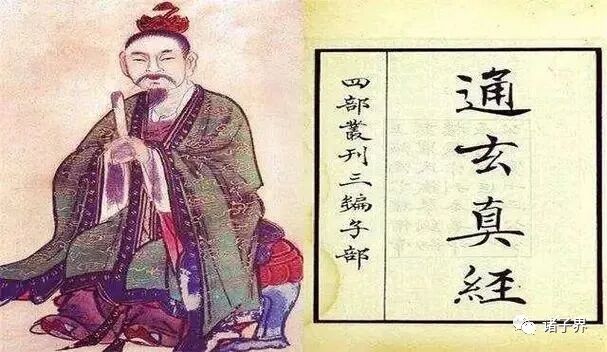 通玄真經
四部叢刊三編子部
诸子界